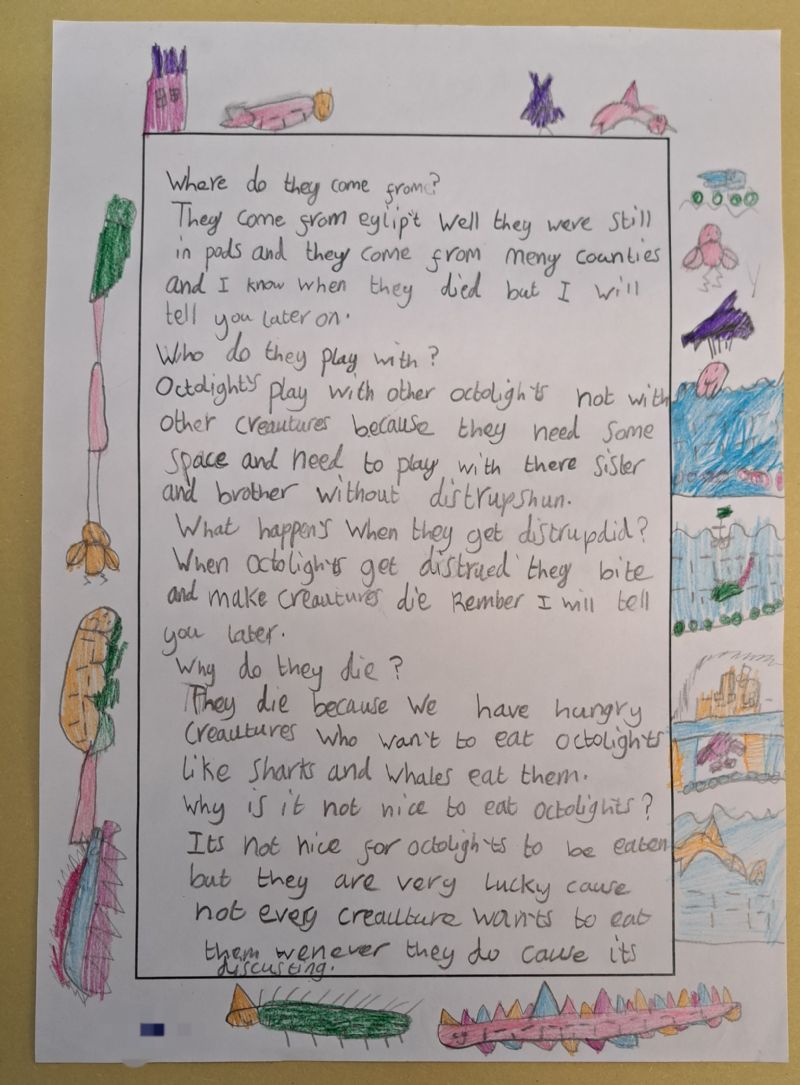 Where do they come from?
They come from eylipt Well they were still
in pods and they come from meny counties
and I know when they died but I will
tell you later on.
Who do they play with?
Octolights play with other octolights not with
other creautures because they need some
space and need to play with there sister
and brother without distrupshun.
What happens when they get distrupdid?
When octolights get distrued they bite
and make creautures die Rember I will tell
you later.
Why do they die?
They die because we have hungry
creautures who want to eat octolights
like sharks and whales eat them.
Why is it not nice to eat octolights?
Its not nice for octolights to be eaten
but they are very lucky cause
not every creauture wants to eat
them wenever they do cause its
discusting.